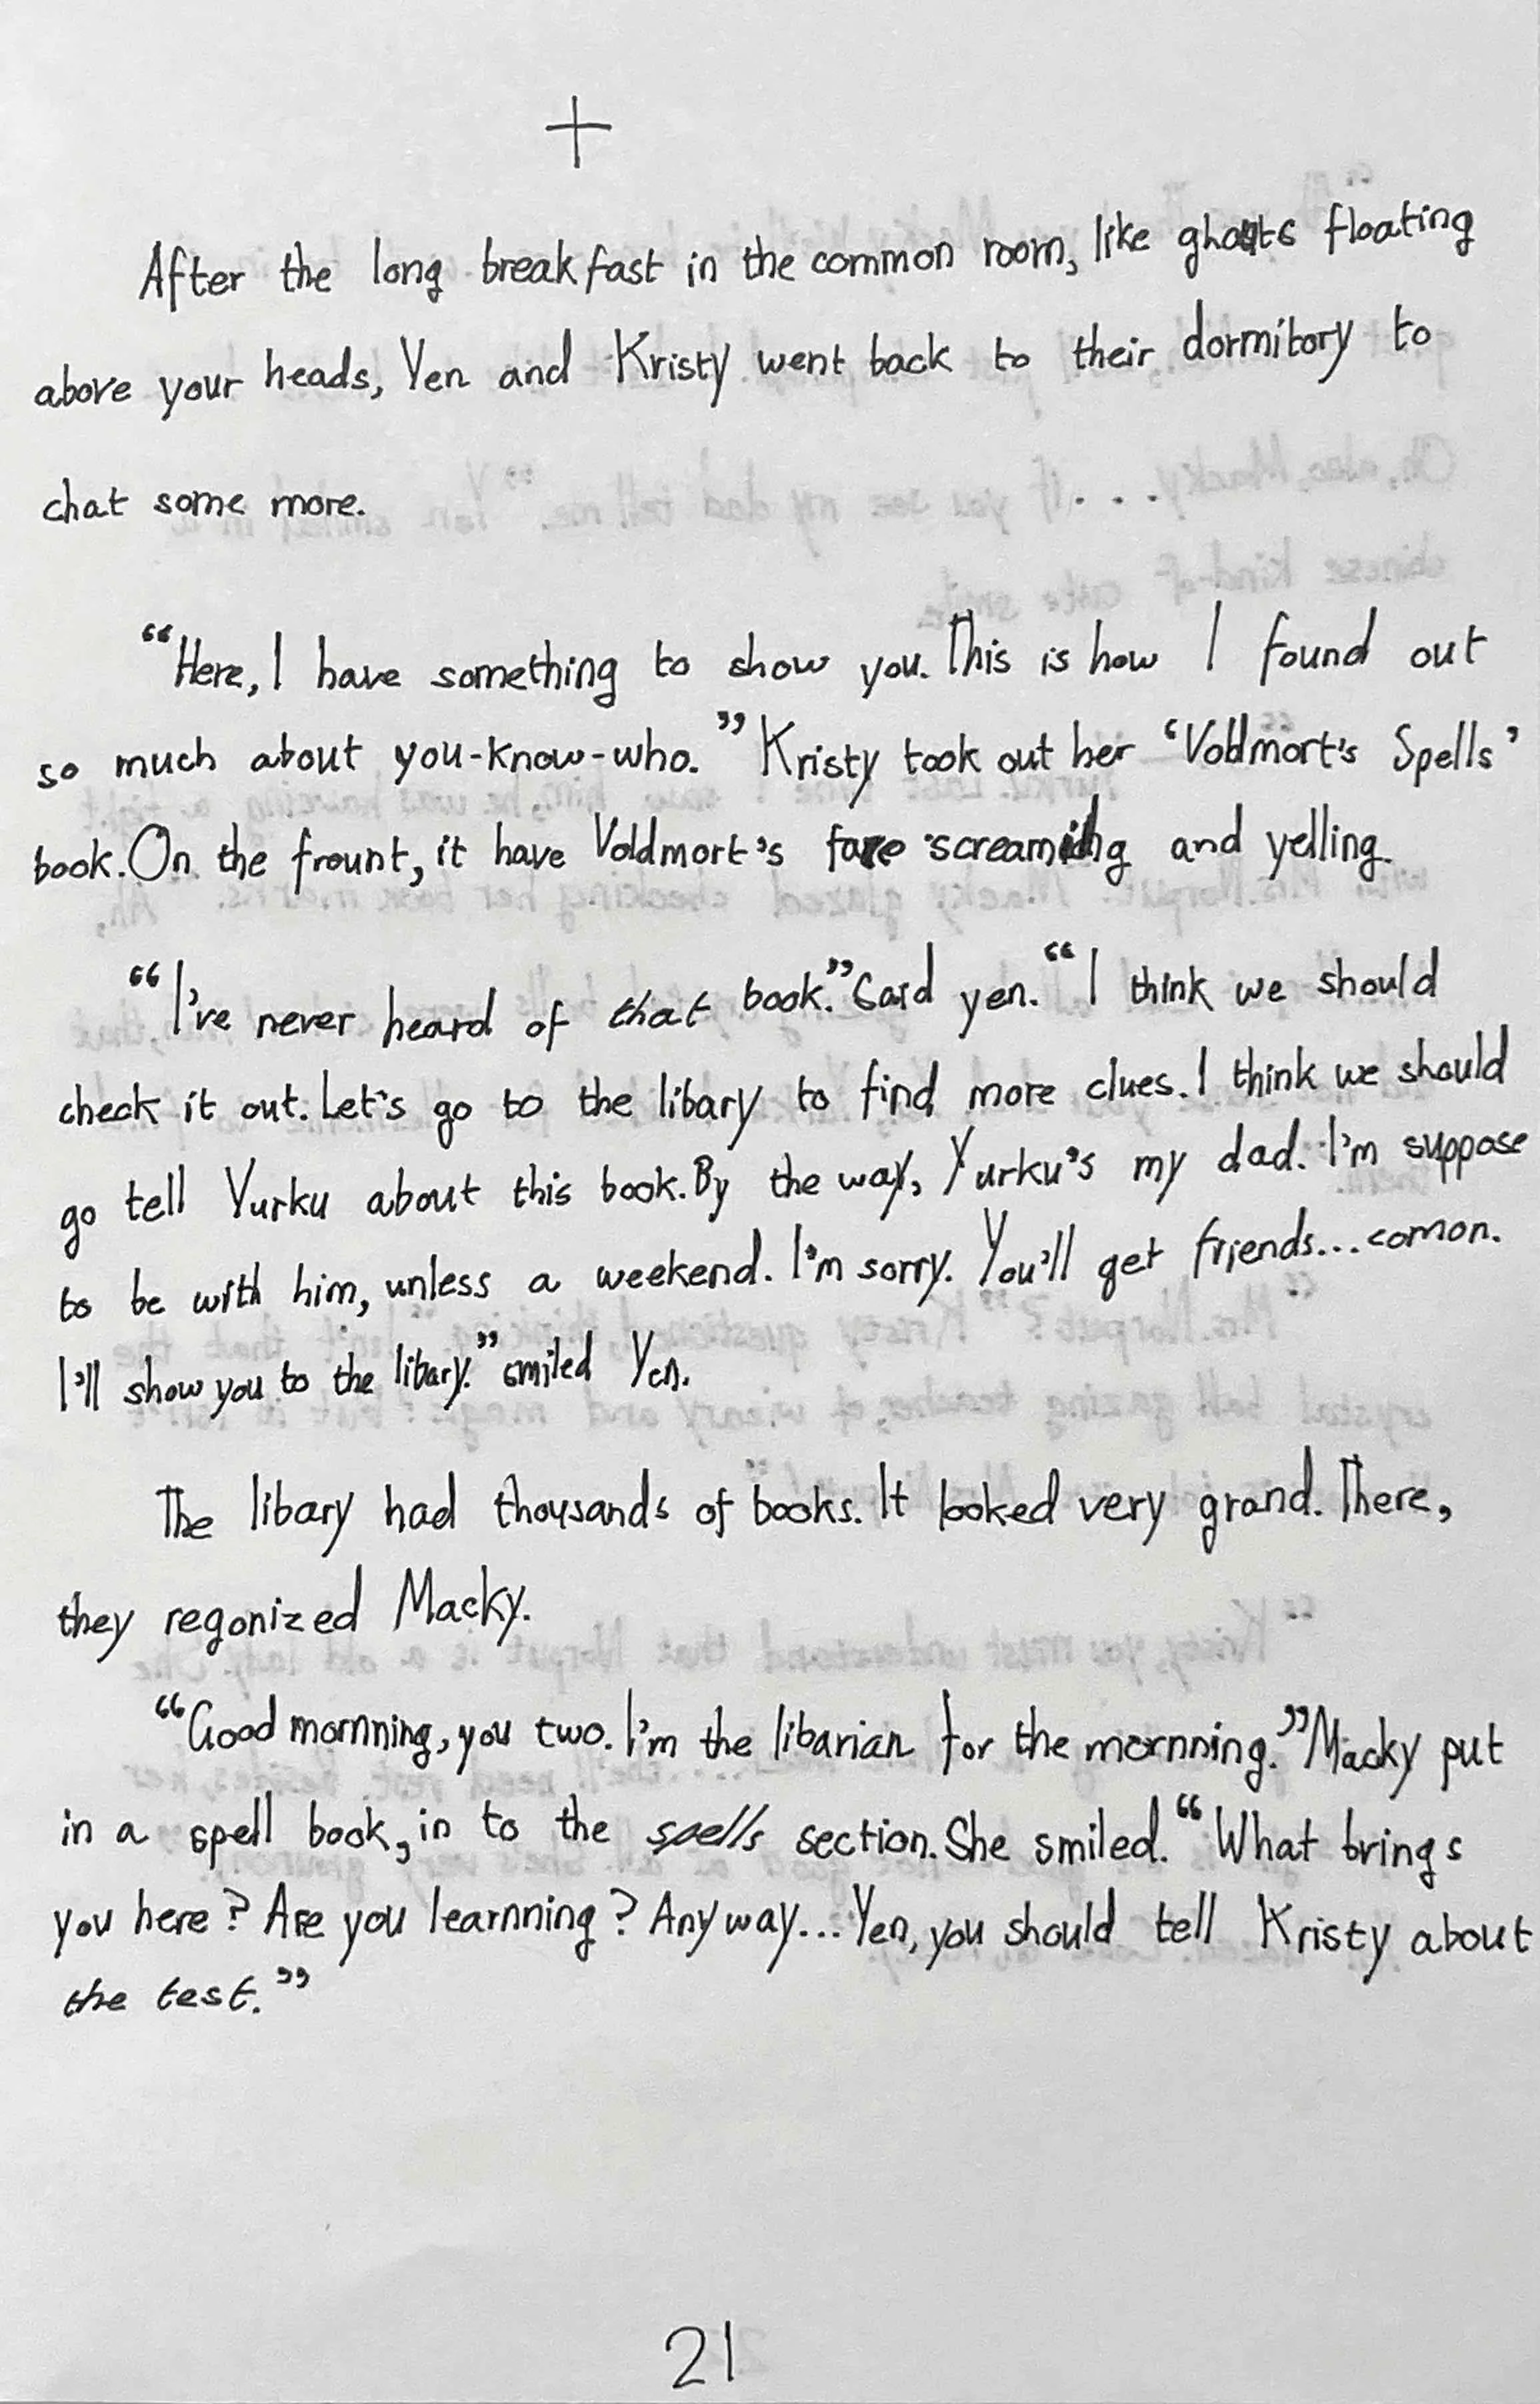 +
After the long breakfast in the common room, like ghosts floating
above your heads, Yen and Kristy went back to their dormitory to
chat some more.
“Here, I have something to show you. This is how I found out
so much about you-know-who.” Kristy took out her ‘Voldmort's Spells’
book. On the frount, it have Voldmort's face screaming and yelling.
“I've never heard of that book.” Said yen. “I think we should
check it out. Let's go to the libary to find more clues. I think we should
go tell Yurku about this book. By the way, Yurku's my dad. I'm suppose
to be with him, unless a weekend. I'm sorry. You'll get friends... comon.
I'll show you to the libary.” smiled Yen.
The libary had thousands of books. It looked very grand. There,
they regonized Macky.
“Good mornning, you two. I'm the libarian for the mornning.” Macky put
in a spell book, in to the spells section. She smiled. “What brings
you here? Are you learnning? Anyway... Yen, you should tell Kristy about
the test.”
21